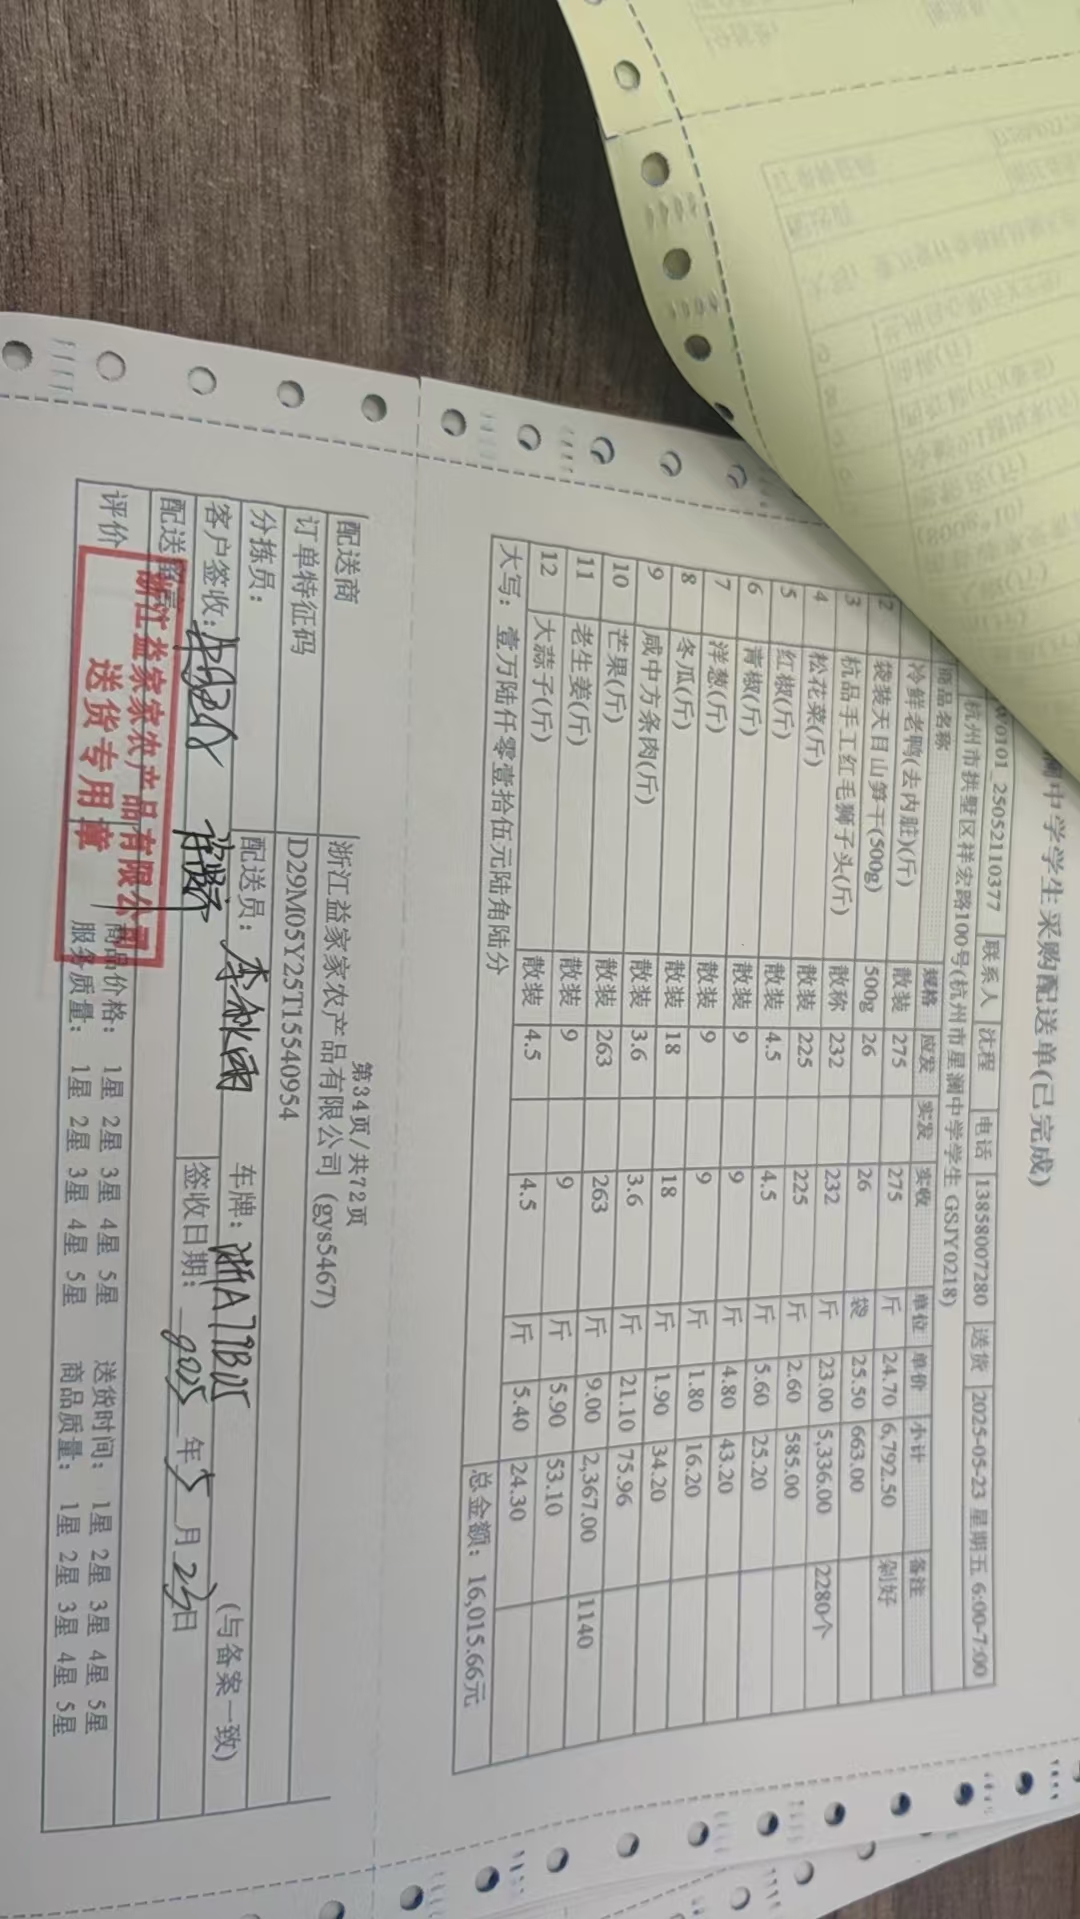 澜中学学生采购配送单(已完成)
W0101_25052110377 联系人 沈程 电话 13858007280 送货 2025-05-23 星期五 6:00-7:00
杭州市拱墅区祥宏路100号(杭州市星澜中学学生 GSJY0218)
商品名称 规格 应发 实发 实收 单位 单价 小计 备注
冷鲜老鸭(去内脏)(斤) 散装 275 275 斤 24.70 6,792.50 剁好
2 袋装天目山笋干(500g) 500g 26 26 袋 25.50 663.00
3 杭品手工红毛狮子头(斤) 散称 232 232 斤 23.00 5,336.00 2280个
4 松花菜(斤) 散装 225 225 斤 2.60 585.00
5 红椒(斤) 散装 4.5 4.5 斤 5.60 25.20
6 青椒(斤) 散装 9 9 斤 4.80 43.20
7 洋葱(斤) 散装 9 9 斤 1.80 16.20
8 冬瓜(斤) 散装 18 18 斤 1.90 34.20
9 咸中方条肉(斤) 散装 3.6 3.6 斤 21.10 75.96
10 芒果(斤) 散装 263 263 斤 9.00 2,367.00 1140
11 老生姜(斤) 散装 9 9 斤 5.90 53.10
12 大蒜子(斤) 散装 4.5 4.5 斤 5.40 24.30
大写：壹万陆仟零壹拾伍元陆角陆分 总金额：16,015.66元
第34页/共72页
配送商 浙江益家家农产品有限公司 (gys5467)
订单特征码 D29M05Y25T15540954
分拣员： 配送员：李秋雨 车牌：浙A7B1J5 (与备案一致)
客户签收： 签收日期：2025年5月23日
配送
评价 商品价格：1星 2星 3星 4星 5星 送货时间：1星 2星 3星 4星 5星
服务质量：1星 2星 3星 4星 5星 商品质量：1星 2星 3星 4星 5星
浙江益家家农产品有限公司
送货专用章